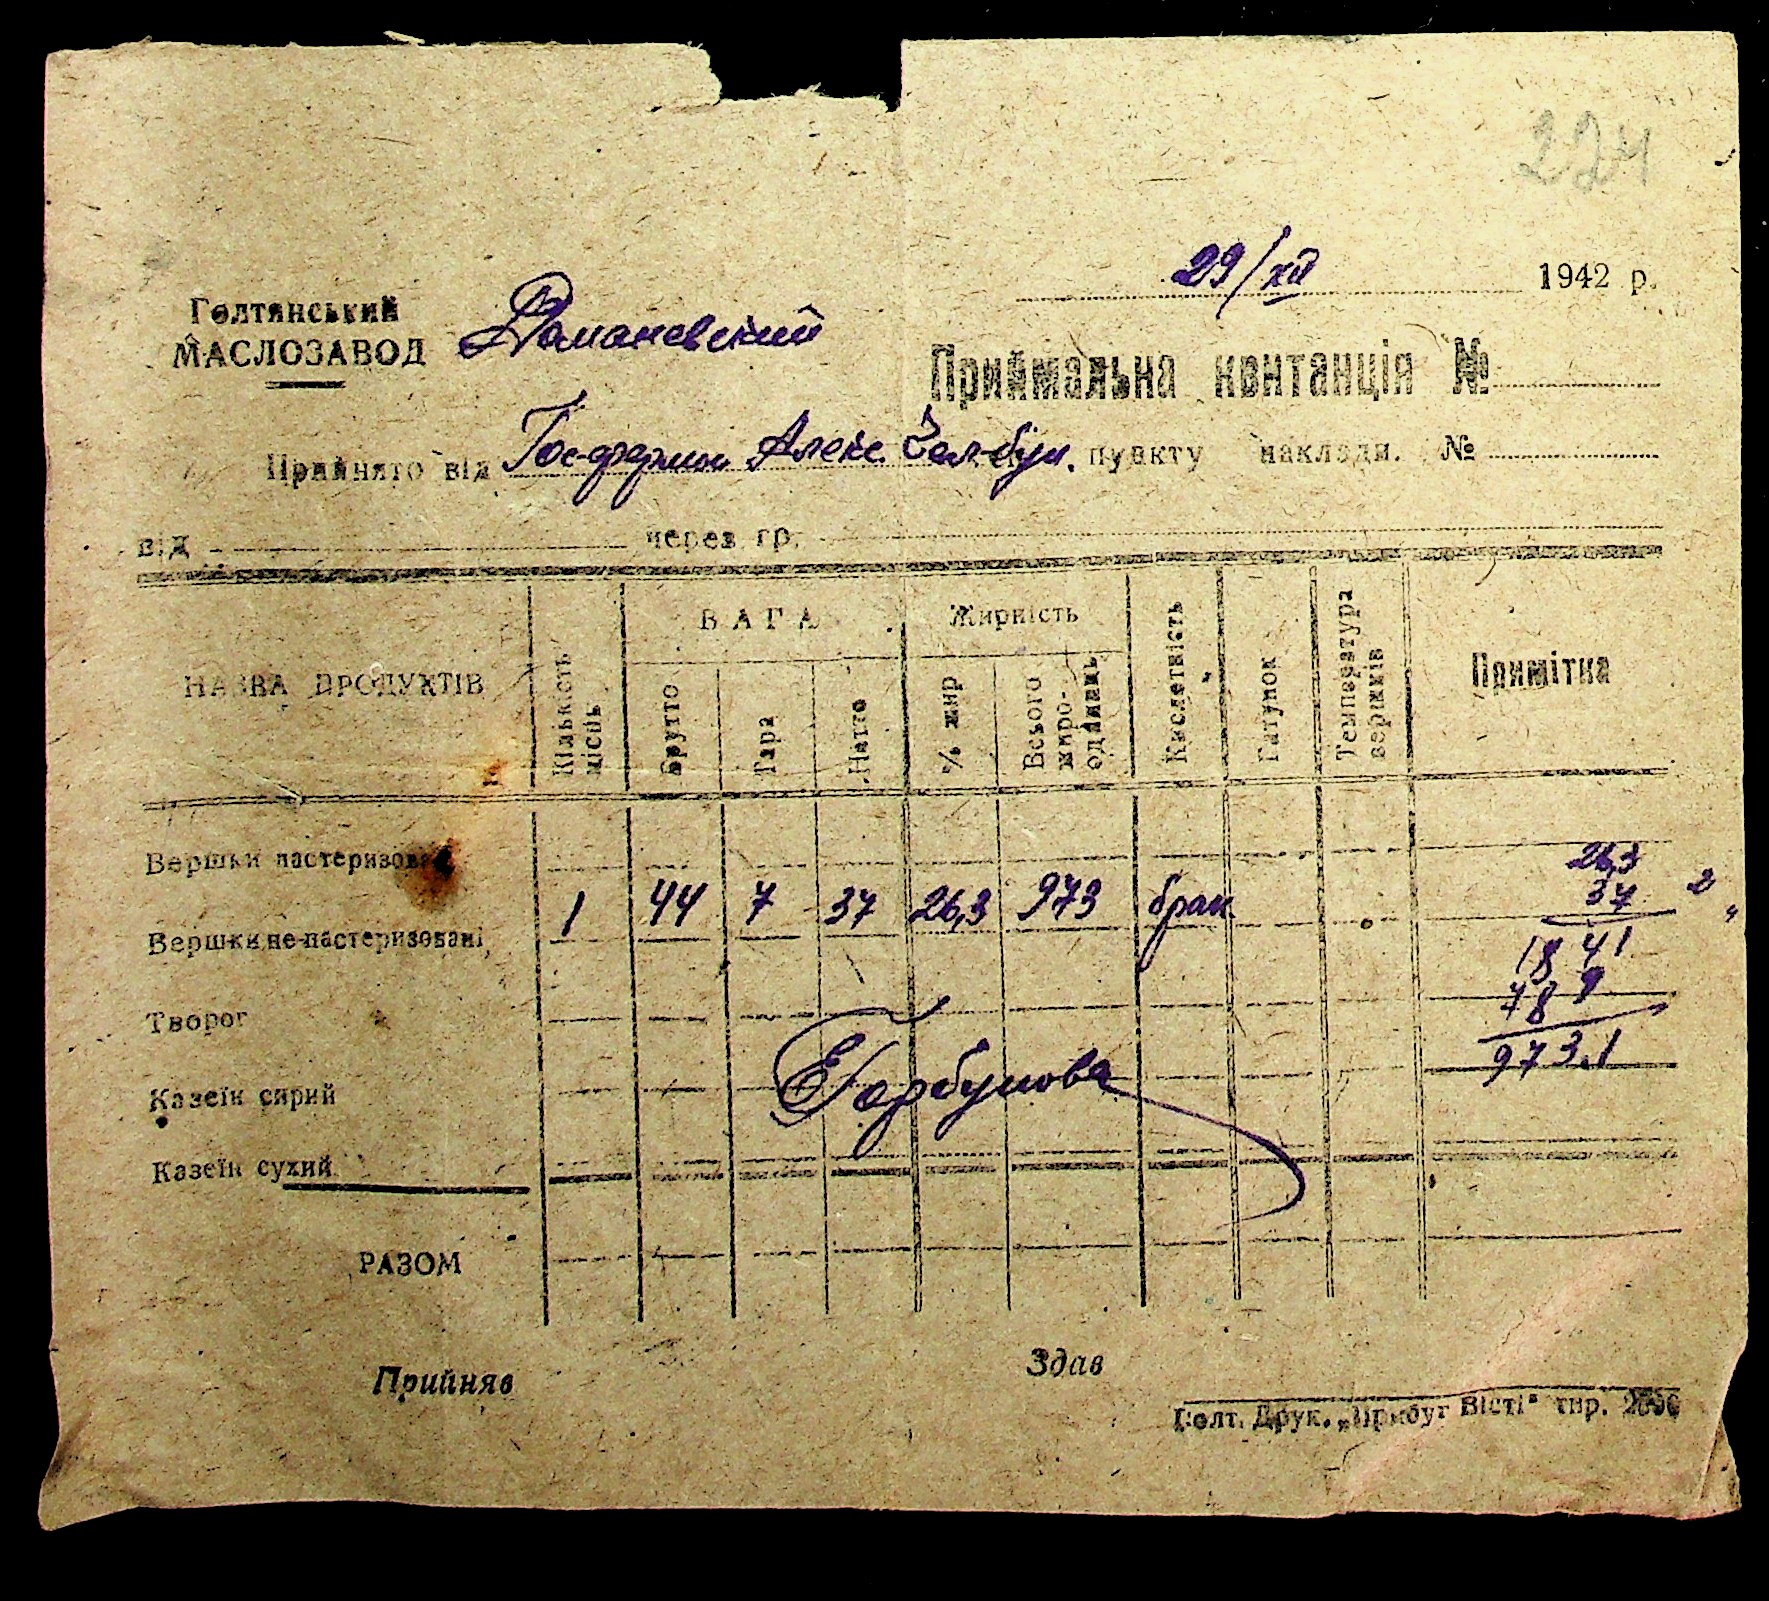 224
29/XII 1942 р.
Голтянський
МАСЛОЗАВОД
Доманевский
Приймальна квитанція №
Прийнято від Гос-фермы Алекс. пункту наклади. №
від через гр.
НАЗВА ПРОДУКТІВ
Кількість місць
ВАГА
Брутто
Тара
Натто
Жирність
% жир
Всього жиро-одиниць
Кислотність
Гатунок
Температура вершків
Примітка
Вершки пастеризовані
Вершки не-пастеризовані 1 44 7 37 26,3 973 брак
Творог
Казеїн сирий
Казеїн сухий
РАЗОМ
26,3
37
18 41
78 9
973.1
Е Горбунова
Прийняв
Здав
Голт. Друк. „Прибуг Вісті“ тир.